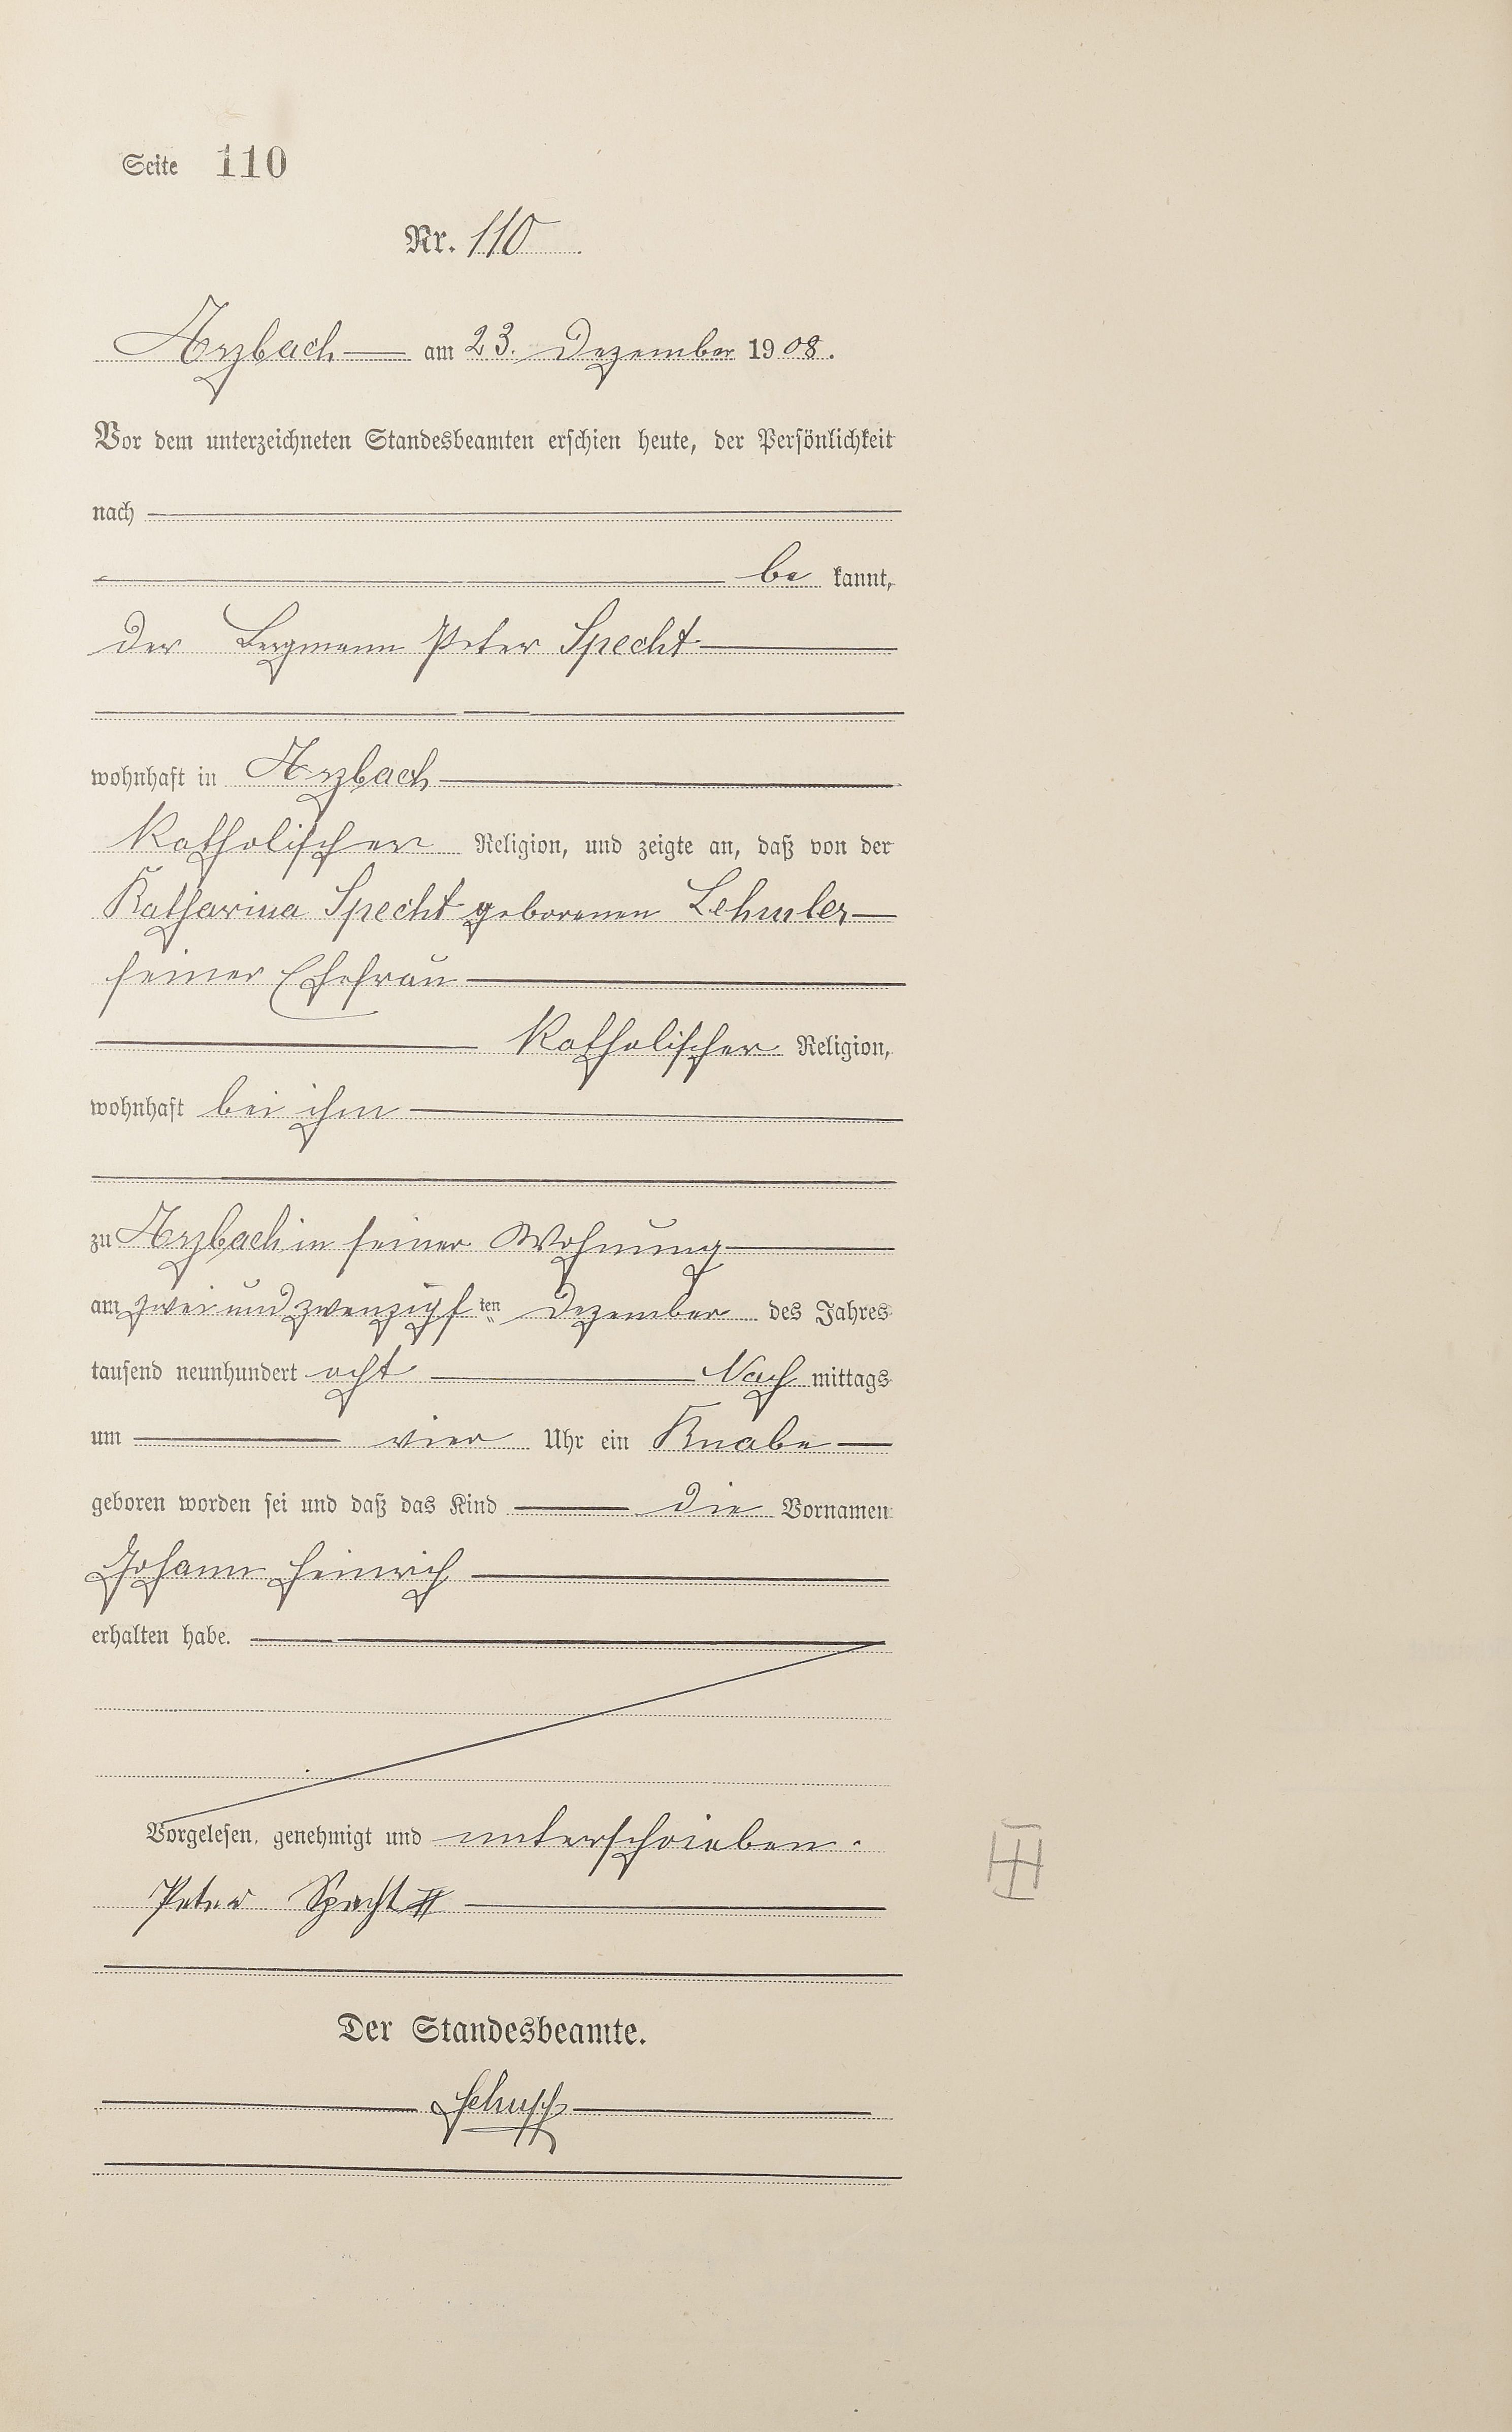 Seite 110
Nr. 110
Arzbach am 23. Dezember 1908.
Vor dem unterzeichneten Standesbeamten erschien heute, der Persönlichkeit
nach
be kannt,
der Bergmann Peter Specht
wohnhaft in Arzbach
katholischer Religion, und zeigte an, daß von der
Katharina Specht geborenen Lehmler
seiner Ehefrau
katholischer Religion,
wohnhaft bei ihm
zu Arzbach in seiner Wohnung
am zwei und zwanzigsten Dezember des Jahres
tausend neunhundert acht Nach mittags
um vier Uhr ein Knabe
geboren worden sei und daß das Kind die Vornamen
Johann Heinrich
erhalten habe.
Vorgelesen, genehmigt und unterschrieben.
Peter Specht II
Der Standesbeamte.